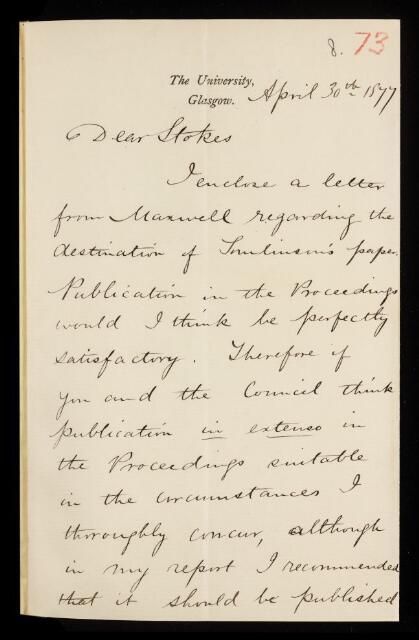 8. 73
The University,
Glasgow. April 30th 1877
Dear Stokes
I enclose a letter
from Maxwell regarding the
destination of Tomlinson's paper.
Publication in the Proceedings
would I think be perfectly
satisfactory. Therefore if
you and the Council think
publication in extenso in
the Proceedings suitable
in the circumstances I
thoroughly concur, although
in my report I recommended
that it should be published